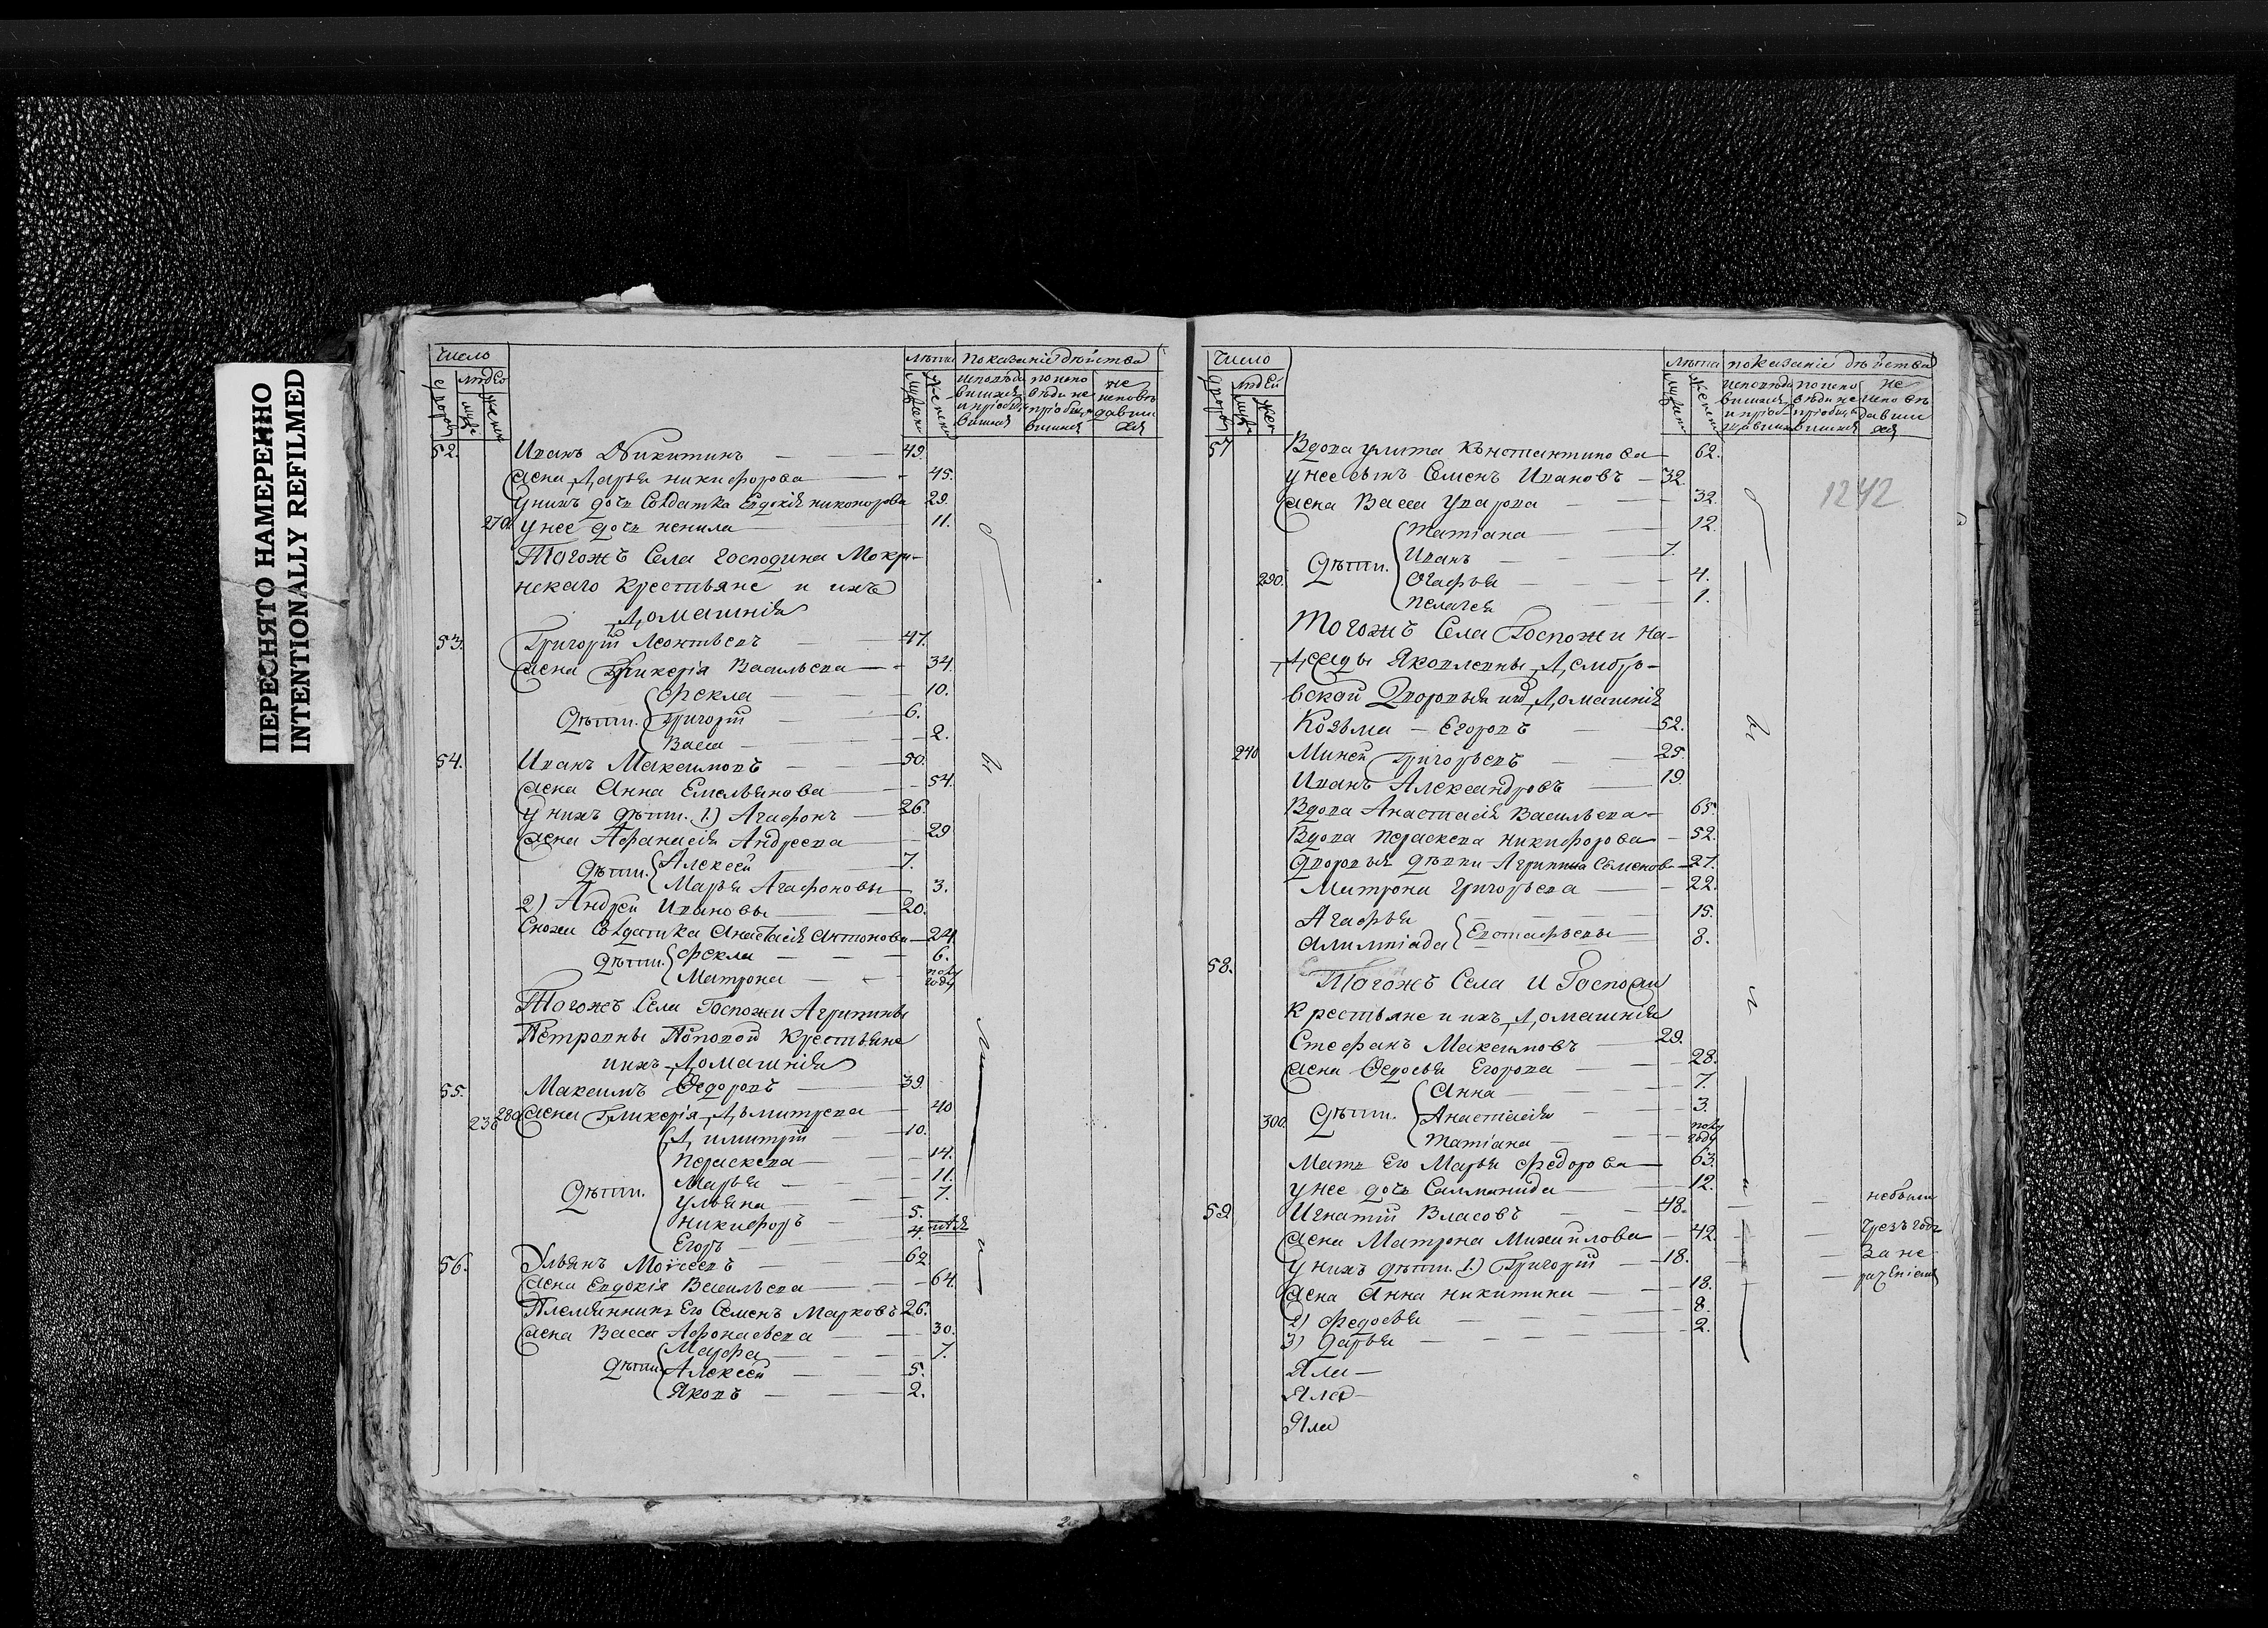 ПЕРЕСНЯТО НАМЕРЕННО
INTENTIONALLY REFILMED
число
людей
лѣта показанiе дѣйства
52. Иванъ Никитинъ 49.
жена Дарья никифорова 45.
у нихъ дочь солдатка Евдокiя никонорова 29.
270 у нее дочь ненила 11.
Тогожъ Села господина Мокри-
нскаго крестьяне и ихъ
Домашнiя
53. Григорiй Леонтьевъ 47.
жена Гликерiя Васильева 34.
Фекла 10.
Дѣти. Григорiй 6.
Васса 2.
54. Иванъ Максимовъ 50.
жена Анна Емельянова 54.
у нихъ дѣти. 1) Агафонъ 26.
жена Афанасiя Андреева 29
Дѣти. Алексей 7.
Марья Агафоновы 3.
2) Андрей Ивановы 20.
Сноха солдатка Анастасiя Антонова 24
Дѣти. Фекла 6.
Матрона полу году
Тогожъ Села Госпожи Агрипины
Петровны Поповой Крестьяне
и ихъ Домашнiя
55. Максимъ Федоровъ 39.
236 280 жена Гликерiя Дмитрева 40
Димитрiй 10.
Параскева 14.
Марья 11.
Дѣти. Ульяна 7.
никифоръ 5.
Егоръ 4.
56. Ульянъ Моисеевъ 62
жена Евдокiя Васильева 64.
Племянникъ Его Семенъ Марковъ 26.
жена Васса Афонасьева 30.
Марфа 7.
Дѣти Алексей 5.
Яковъ 2.
число
людей
лѣта показанiе дѣйства
57 Вдова улита Константинова 62.
у нее сынъ Семенъ Ивановъ 32.
жена Васса Уварова 32.
1242
Татiана 12.
Дѣти. Иванъ 7.
290. Агафья 4.
Пелагея 1.
Тогожъ Села Госпожи На-
дежды Яковлевны
Дворовыя ихъ Домашнiя
Козьма Егоровъ 52.
240 Миней Григорьевъ 25.
Иванъ Александровъ 19.
Вдова Анастасiя Васильева 65.
Вдова Параскева никифорова 52.
дворовыя дѣвки Агрипина Семенова 21.
Матрона григорьева 22.
Агафья 15.
Алимпiада Евстафьевы 8.
58.
Тогожъ Села и Госпожи
Крестьяне и ихъ Домашнiя
Стефанъ Максимовъ 29.
жена Федосья Егорова 28.
Анна 7.
300 Дѣти. Анастасiя 3.
Татiана полу году
Мать Его Марья Федорова 63.
у нее дочь Саломанида 12.
59. Игнатiй Власовъ 48. небыли
жена Матрона Михайлова 42. чрезъ годъ
у нихъ дѣти. 1.) Григорiй 18. за не
жена Анна никитина 18. раченiемъ
2) Федосья 8.
3) Дарья 2.